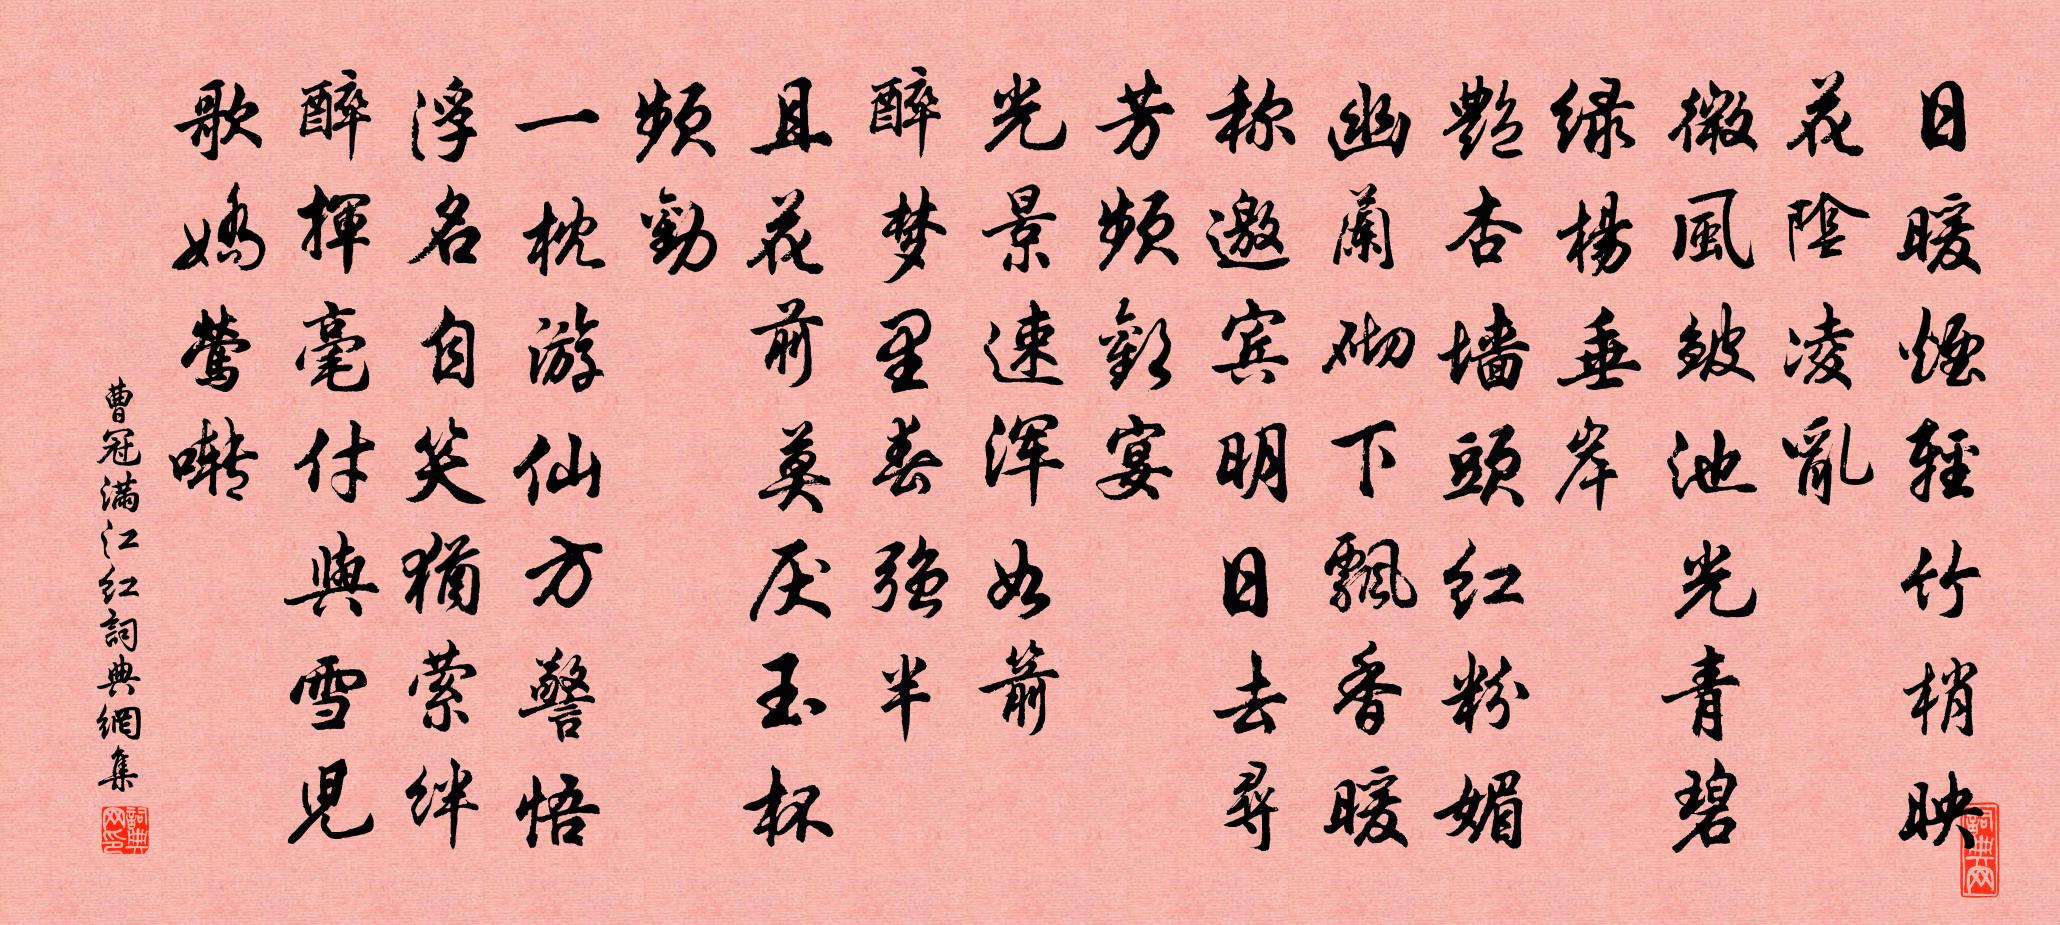 日暖煙輕竹梢映
花陰凌亂
微風皱池光青碧
绿楊垂岸
艷杏墙頭红粉媚
幽蘭砌下飄香暖
称邀宾明日去尋
芳頻歡宴
光景速浑如箭
醉梦里春强半
且花前莫厌玉杯
頻勸
一枕游仙方警悟
浮名自笑猶萦絆
醉揮毫付與雪児
歌嬌鶯囀
曹冠滿江红詞典網集
詞典网印
詞典网